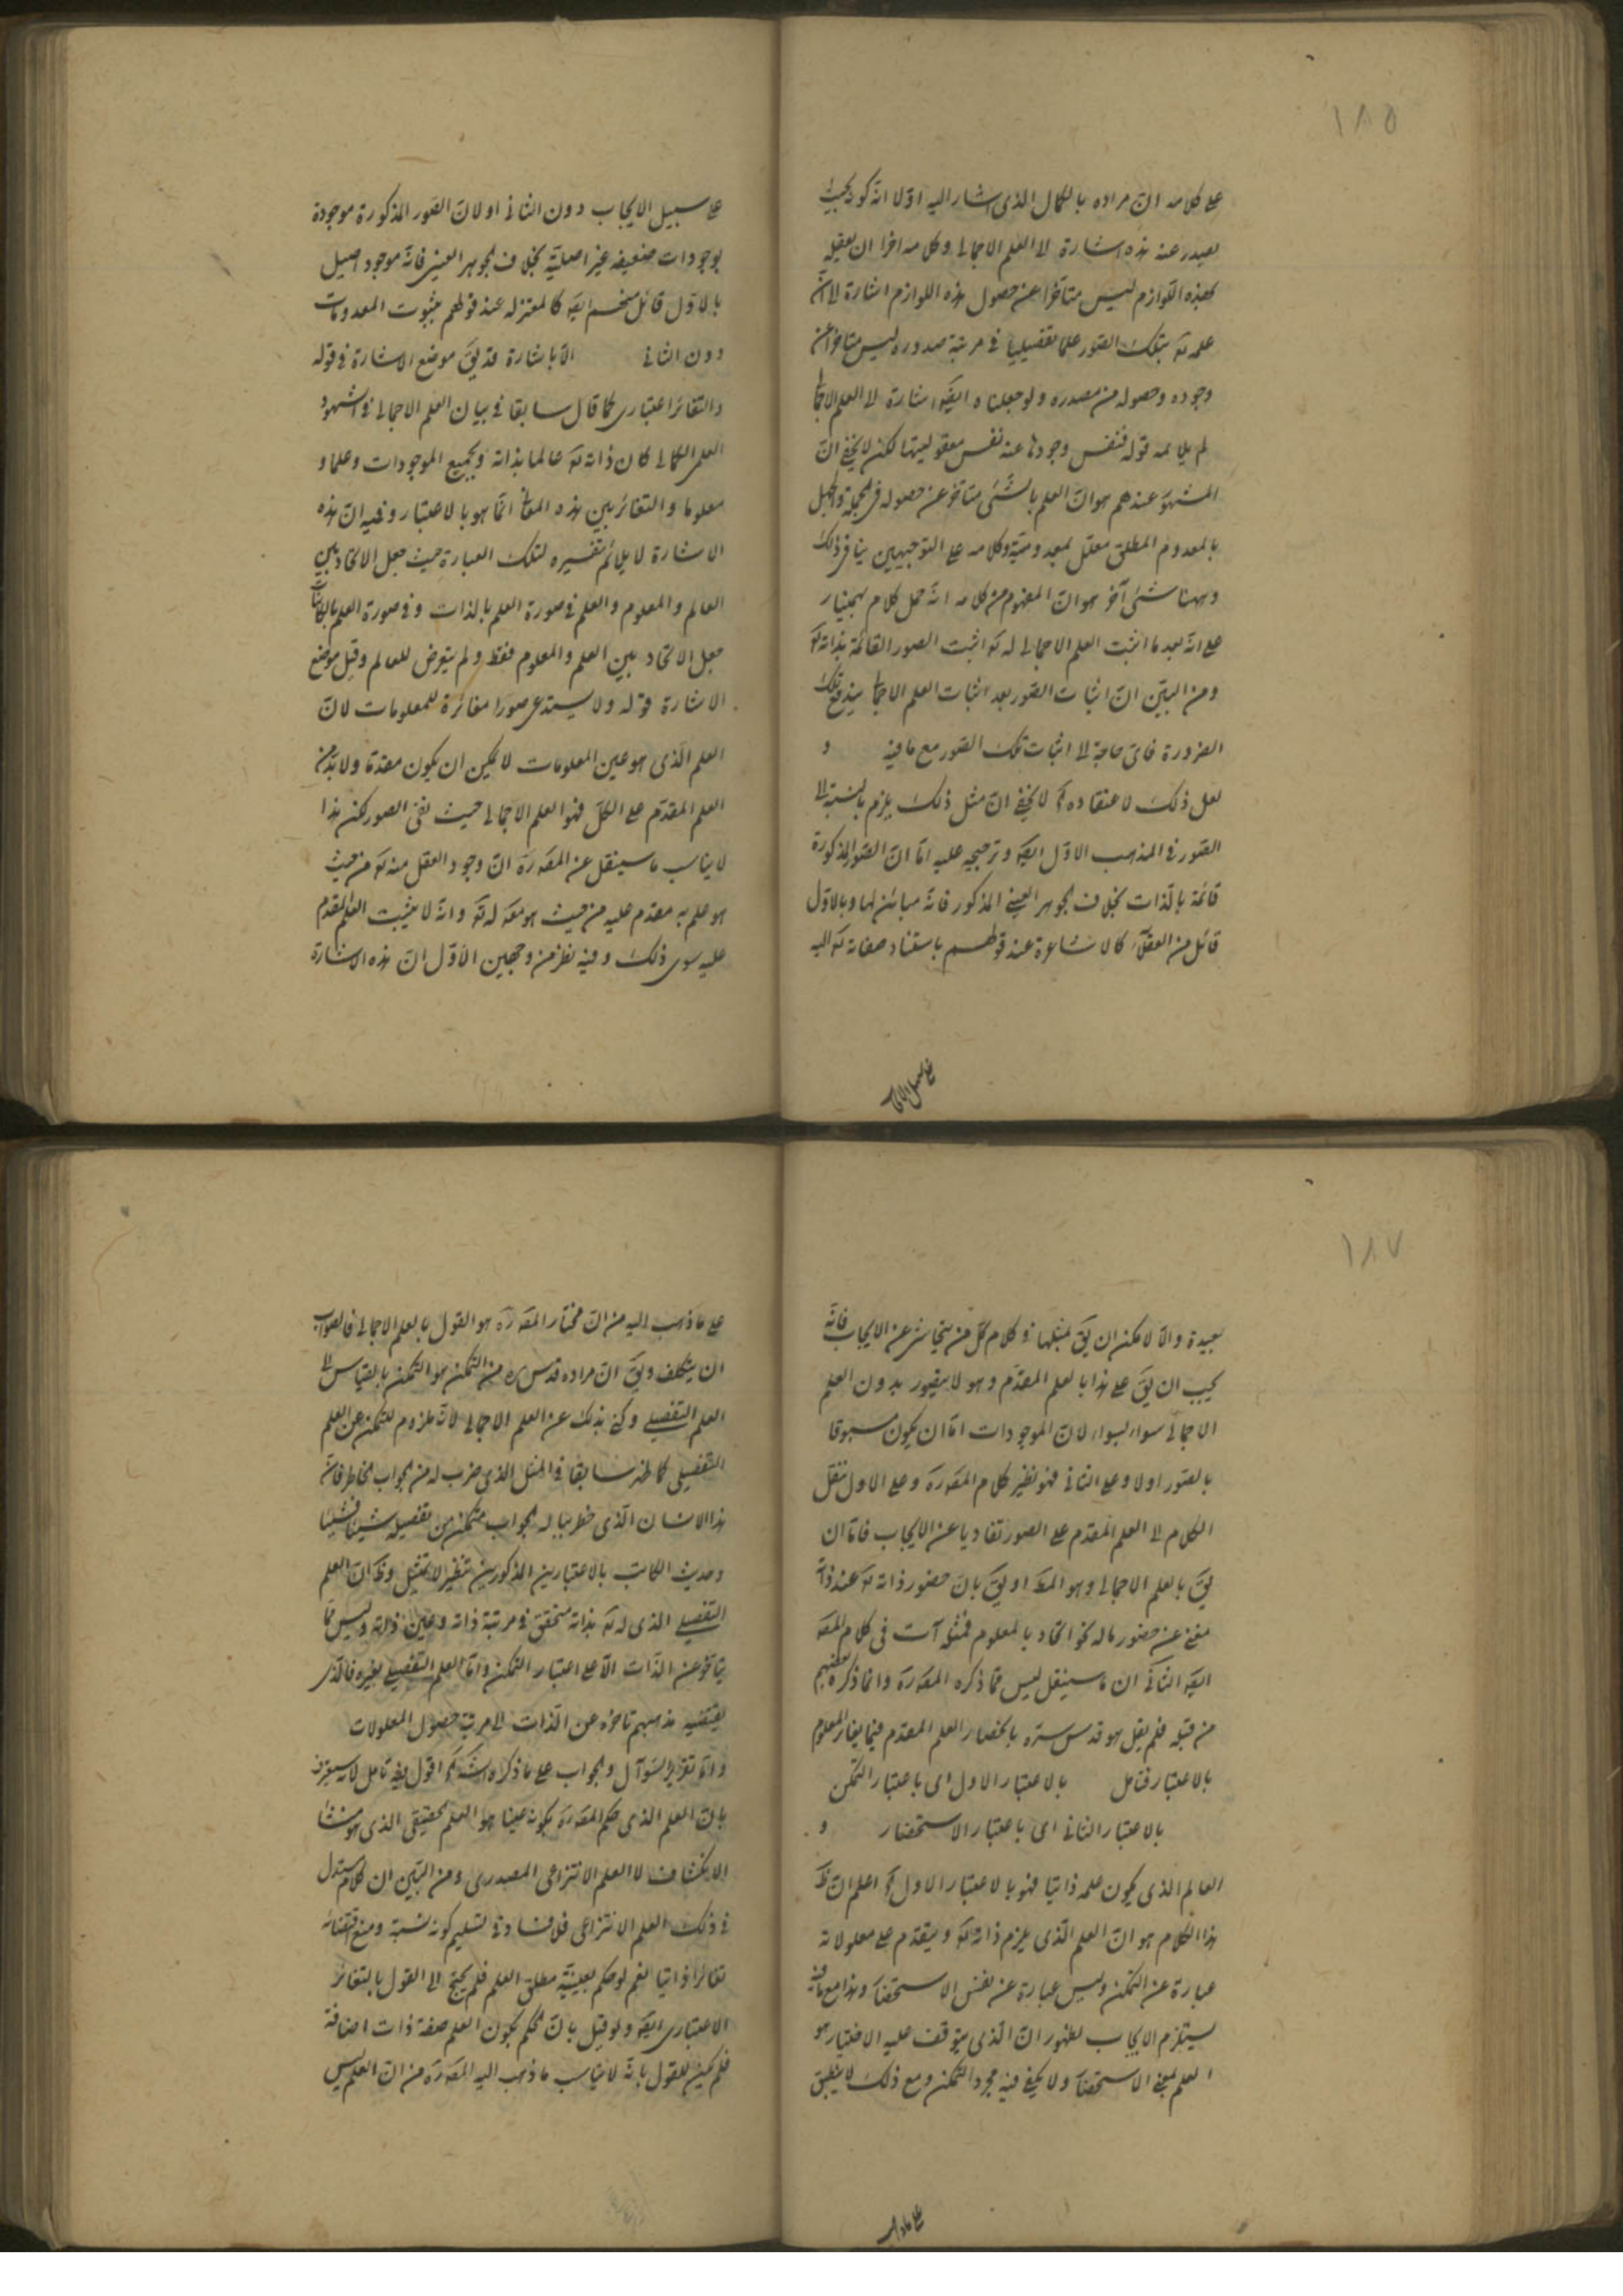 ١٨٥
على كلامه ان مراده بالكمال الذى اشار اليه اولا انه كونه بحيث
يصدر عنه هذه اشارة الى العلم الاجمالى وكلامه اخرا ان يعقله
لهذه اللوازم ليس متاخرا عن حصول هذه اللوازم اشارة الى انّ
علمه تع بتلك الصور علما تفصيليا فى مرتبة صدوره ليس متاخرا عن
وجوده وحصوله من مصدره ولو جعلناه ايضا اشارة الى العلم الاجمالى
لم يلايمه قوله فنفس وجودها عنه نفس معقوليتها لكن لا يخفى انّ
المشهور عندهم هو انّ العلم بالشئ متاخر عن حصوله فى الجملة والجهل
بالمعدوم المطلق معلل بمعدوميته وكلامه على التوجيهين ينافى ذلك
وههنا شئ آخر هو انّ المفهوم من كلامه انّه حمل كلام بهمنيار
على انّه بعد ما اثبت العلم الاجمالى له تع اثبت الصور القائمة بذاته تع
ومن البيّن انّ اثبات الصور بعد اثبات العلم الاجمالى يندفع تلك
الضرورة فاى حاجة الى اثبات تلك الصور مع ما فيه و
لعل ذلك لاعتقاده لا يخفى انّ مثل ذلك يلزم بالنسبة الى
الصور فى المذهب الاوّل ايضا وترجيحه عليه امّا انّ الصور المذكورة
قائمة بالذات بخلاف الجوهر العينى المذكور فانّه مبائن لها وبالاوّل
قائل من العقلاء كالاشاعرة عند قولهم باستناد صفاته تع اليه
على سبيل الايجاب
على سبيل الايجاب دون الثانى او لانّ الصور المذكورة موجودة
بوجودات ضعيفه غير اصلية بخلاف الجوهر العينى فانّه موجود اصيل
بالاوّل قائل منهم ايضا كالمعتزله عند قولهم بثبوت المعدومات
دون الثانى الا باشارة قد يق موضع الاشارة فى قوله
والتغائر اعتبارى كما قال سابقا فى بيان العلم الاجمالى فى الشهود
العلمى الكمالى كان ذاته تع عالما بذاته وبجميع الموجودات وعلما و
معلوما والتغائر بين هذه المعانى انّما هو بالاعتبار وفيه انّ هذه
الاشارة لا يلائم تفسيره لتلك العبارة حيث جعل الاتحاد بين
العالم والمعلوم والعلم فى صورة العلم بالذات وفى صورة العلم بالكائنات
جعل الاتحاد بين العلم والمعلوم فقط ولم يتعرض للعالم وقيل موضع
الاشارة قوله ولا يستدعى صورا مغائرة للمعلومات لانّ
العلم الذى هو عين المعلومات لا يمكن ان يكون مقدما ولا بد من
العلم المقدّم على الكلّ فهو العلم الاجمالى حيث نفى الصور لكن هذا
لا يناسب ما سينقل عن المصره انّ وجود العقل منه تع من حيث
هو علم به مقدم عليه من حيث هو معه له تع وانّه لا يثبت العلم المقدم
عليه سوى ذلك وفيه نظر من وجهين الاوّل انّ هذه الاشارة
١٨٧
بعيدة والا لامكن ان يق بمثلها فى كلام كلّ من يتحاشى عن الايجاب فانّه
يجب ان يق على هذا بالعلم المقدّم وهو لا يتصور بدون العلم
الاجمالى سواء بسواء لانّ الموجودات امّا ان يكون مسبوقا
بالصور اولا وعلى الثانى فهو نظير كلام المصره وعلى الاول ننقل
الكلام الى العلم المقدم على الصور تفاديا عن الايجاب فامّا ان
يق بالعلم الاجمالى وهو المط او يق بانّ حضور ذاته تع عند ذاته
مغنى عن حضور ما له نحو اتحاد بالمعلوم فمثله آت فى كلام المصه
ايضا الثانى ان ما سينقل ليس ممّا ذكره المصره وانما ذكره بعضهم
من قبله فلم يقل هو قدس سرّه بانحصار العلم المقدم فيما يغاير المعلوم
بالاعتبار فتامل بالاعتبار الاول اى باعتبار التمكن
بالاعتبار الثانى اى باعتبار الاستحضار و
العالم الذى يكون علمه ذاتيا فهو بالاعتبار الاول اعلم انّ ظ
هذا الكلام هو انّ العلم الذى يلزم ذاته تع ويتقدم على معلولاته
عبارة عن التمكن وليس عبارة عن نفس الاستحضار وهذا مع ما فيه
يستلزم الايجاب لظهور انّ الذى يتوقف عليه الاختيار هو
العلم بمعنى الاستحضار ولا يكفى فيه مجرد التمكن ومع ذلك لا ينطبق
على ما ذهب
على ما ذهب اليه من انّ مختار المصره هو القول بالعلم الاجمالى فالصواب
ان يتكلف ويق انّ مراده قدس سره من التمكن هو التمكن بالقياس الى
العلم التفصيلى وكنى بذلك عن العلم الاجمالى لانّه ملزوم للتمكن عن العلم
التفصيلى كما ظهر سابقا فى المثل الذى ضرب له من الجواب الخاطر فانّ
هذا الانسان الذى خطر بباله الجواب متمكن من تفصيله شيئا فشيئا
وحديث الكاتب بالاعتبارين المذكورين تنظير لا تمثيل وظ انّ العلم
التفصيلى الذى له تع بذاته متحقق فى مرتبة ذاته وعين ذاته وليس ممّا
يتاخر عن الذات الا على اعتبار التمكن وامّا العلم التفصيلى بغيره فالذى
يقتضيه مذهبهم تاخره عن الذات الى مرتبة حصول المعلولات
وامّا تقرير السؤال والجواب على ما ذكره اقول فيه تامل لانه سيعترف
بانّ العلم الذى حكم المصره بكونه عينا هو العلم الحقيقى الذى هو منشأ
الانكشاف لا العلم الانتزاعى المصدرى ومن البيّن ان كلام المستدل
فى ذلك العلم الانتزاعى فلا فساد فى تسليم كونه نسبة ومنع اقتضائه
تغائرا ذاتيا نعم لو حكم بعينيّة مطلق العلم فلم يحتج الى القول بالتغائر
الاعتبارى ايضا ولو قيل بانّ الحكم بكون العلم صفة ذات اضافة
فلم يمكن القول بانّه لا يناسب ما ذهب اليه المصره من انّ العلم ليس